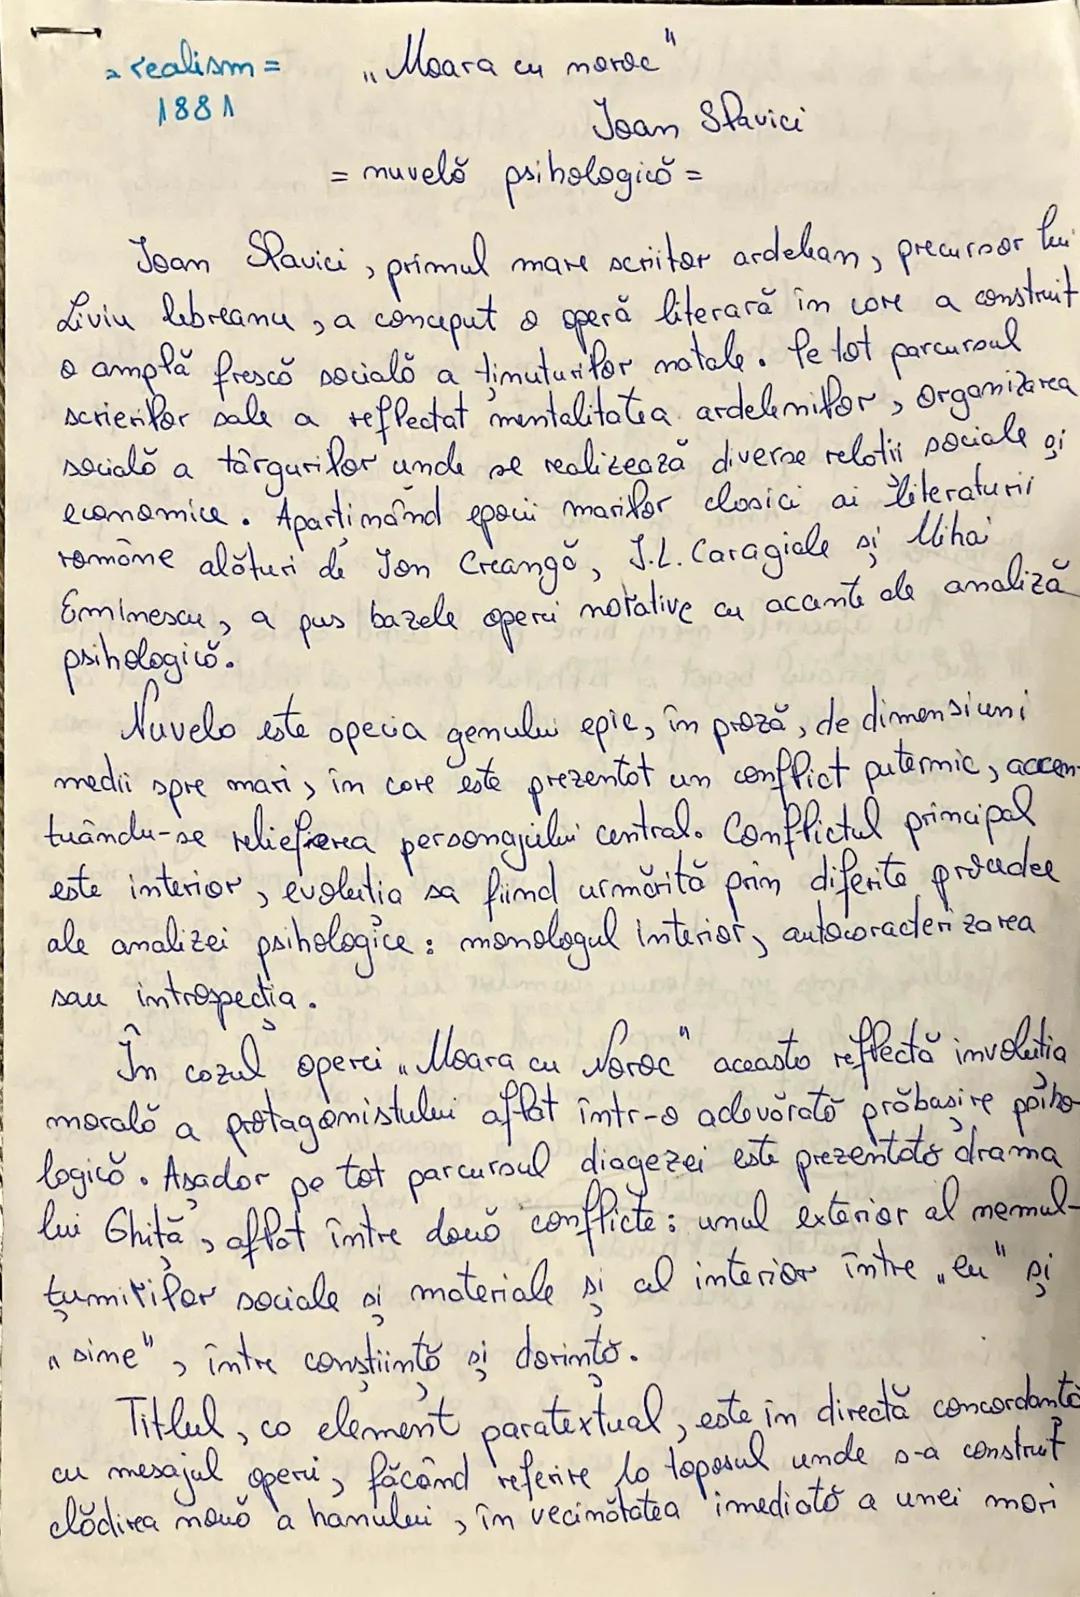 = realism =
„Moara cu noroc"
1881
Ioan Slavici
= nuvelă psihologică =
Ioan Slavici, primul mare scriitor ardelean, precursor lui
Liviu Rebreanu, a conceput o operă literară în care a construit
o amplă frescă socială a ținuturilor natale. Pe tot parcursul
scrierilor sale a reflectat mentalitatea ardelenilor, organizarea
socială a târgurilor unde se realizează diverse relații sociale și
economice. Aparținând epocii marilor clasici ai literaturii
române alături de Ion Creangă, I.L. Caragiale și Mihai
Eminescu, a pus bazele operei narative cu accente de analiză
psihologică.
Nuvela este specia genului epic, în proză, de dimensiuni
medii spre mari, în care este prezentat un conflict puternic, accen-
tuându-se reliefarea personajului central. Conflictul principal
este interior, evoluția sa fiind urmărită prin diferite procedee
ale analizei psihologice: monologul interior, autocaracterizarea
sau introspecția.
În cazul operei „Moara cu Noroc" aceasta reflectă involuția
morală a protagonistului aflat într-o adevărată prăbușire psiho-
logică. Așadar pe tot parcursul diegezei este prezentată drama
lui Ghiță, aflat între două conflicte: unul exterior al nemul-
țumirilor sociale și materiale și al interior între „eu" și
„sine", între conștiință și dorință.
Titlul, ca element paratextual, este în directă concordanță
cu mesajul operei, făcând referire la toposul unde s-a construit
clădirea nouă a hanului, în vecinătatea imediată a unei mori